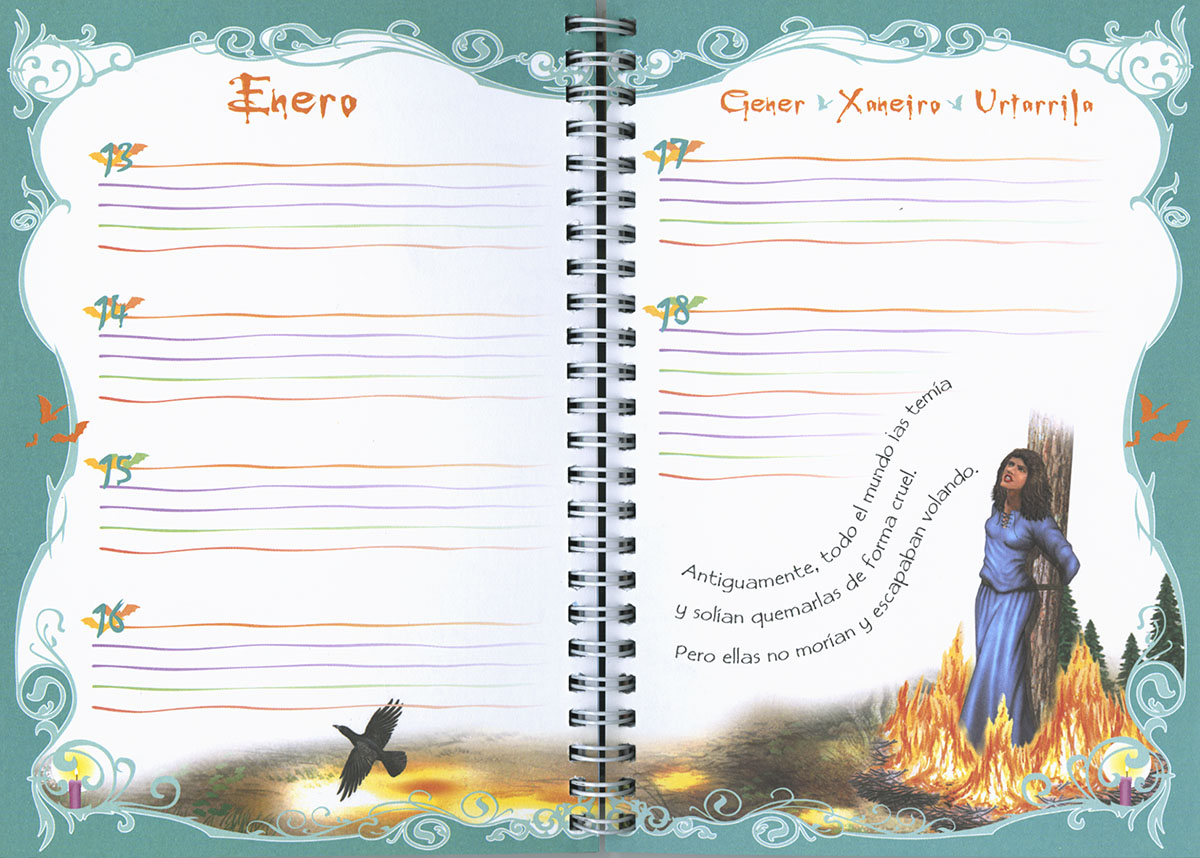 Enero
13
14
15
16
Gener Xaneiro Urtarrila
17
18
Antiguamente, todo el mundo las temía
y solían quemarlas de forma cruel.
Pero ellas no morían y escapaban volando.